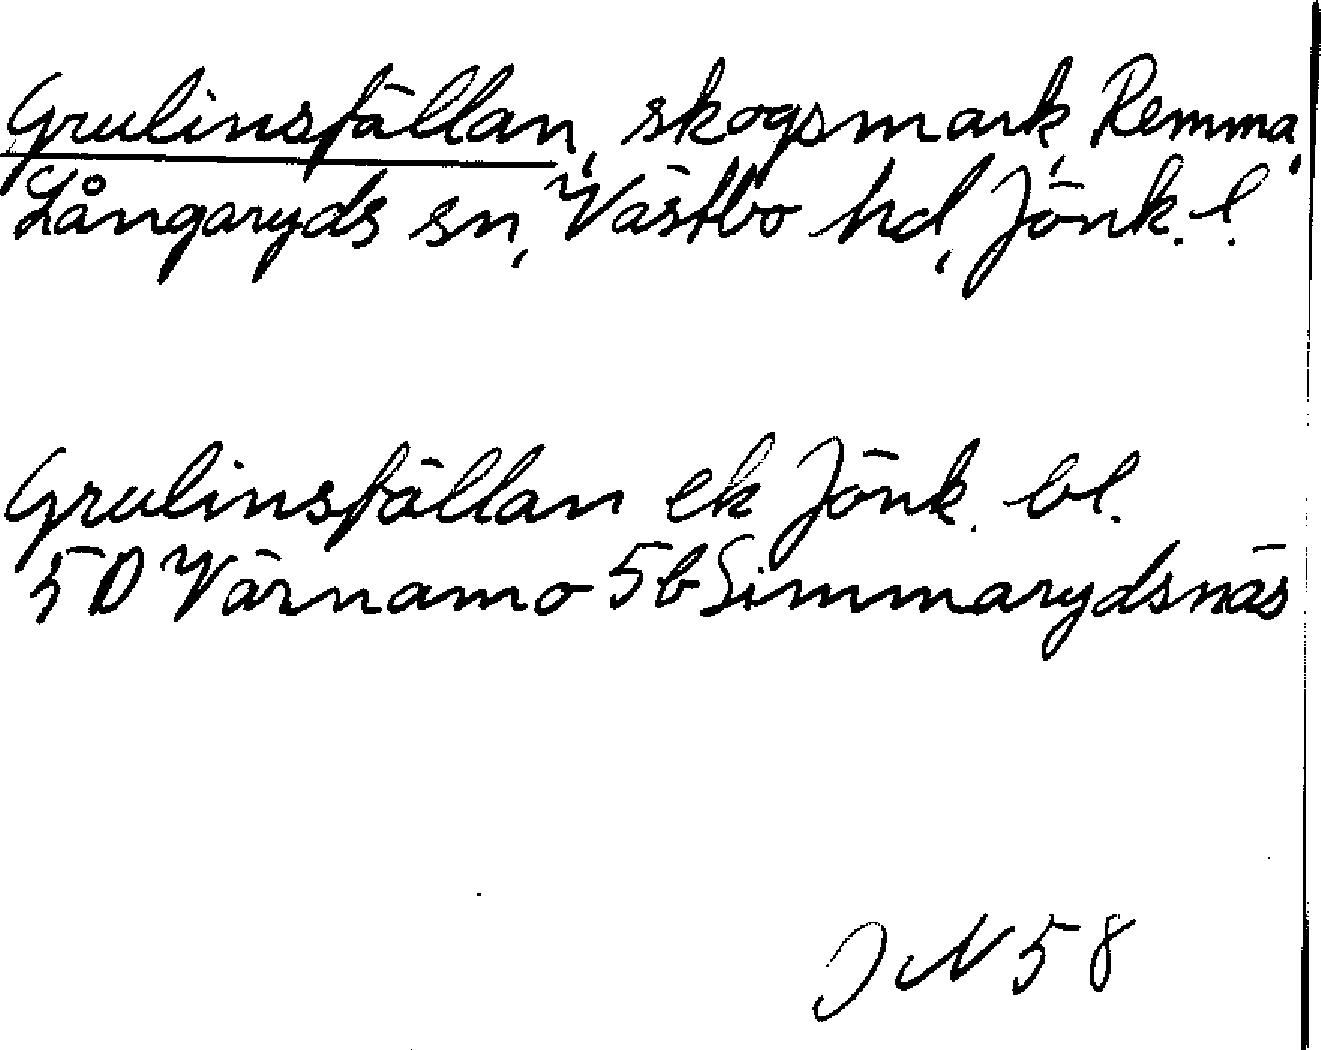 Grulinsfällan, skogsmark, Remma,
Långaryds sn, Västbo hd, Jönk. l.
Grulinsfällan ek Jönk. bl.
5D Värnamo 5b Simmarydsnäs
JN 58